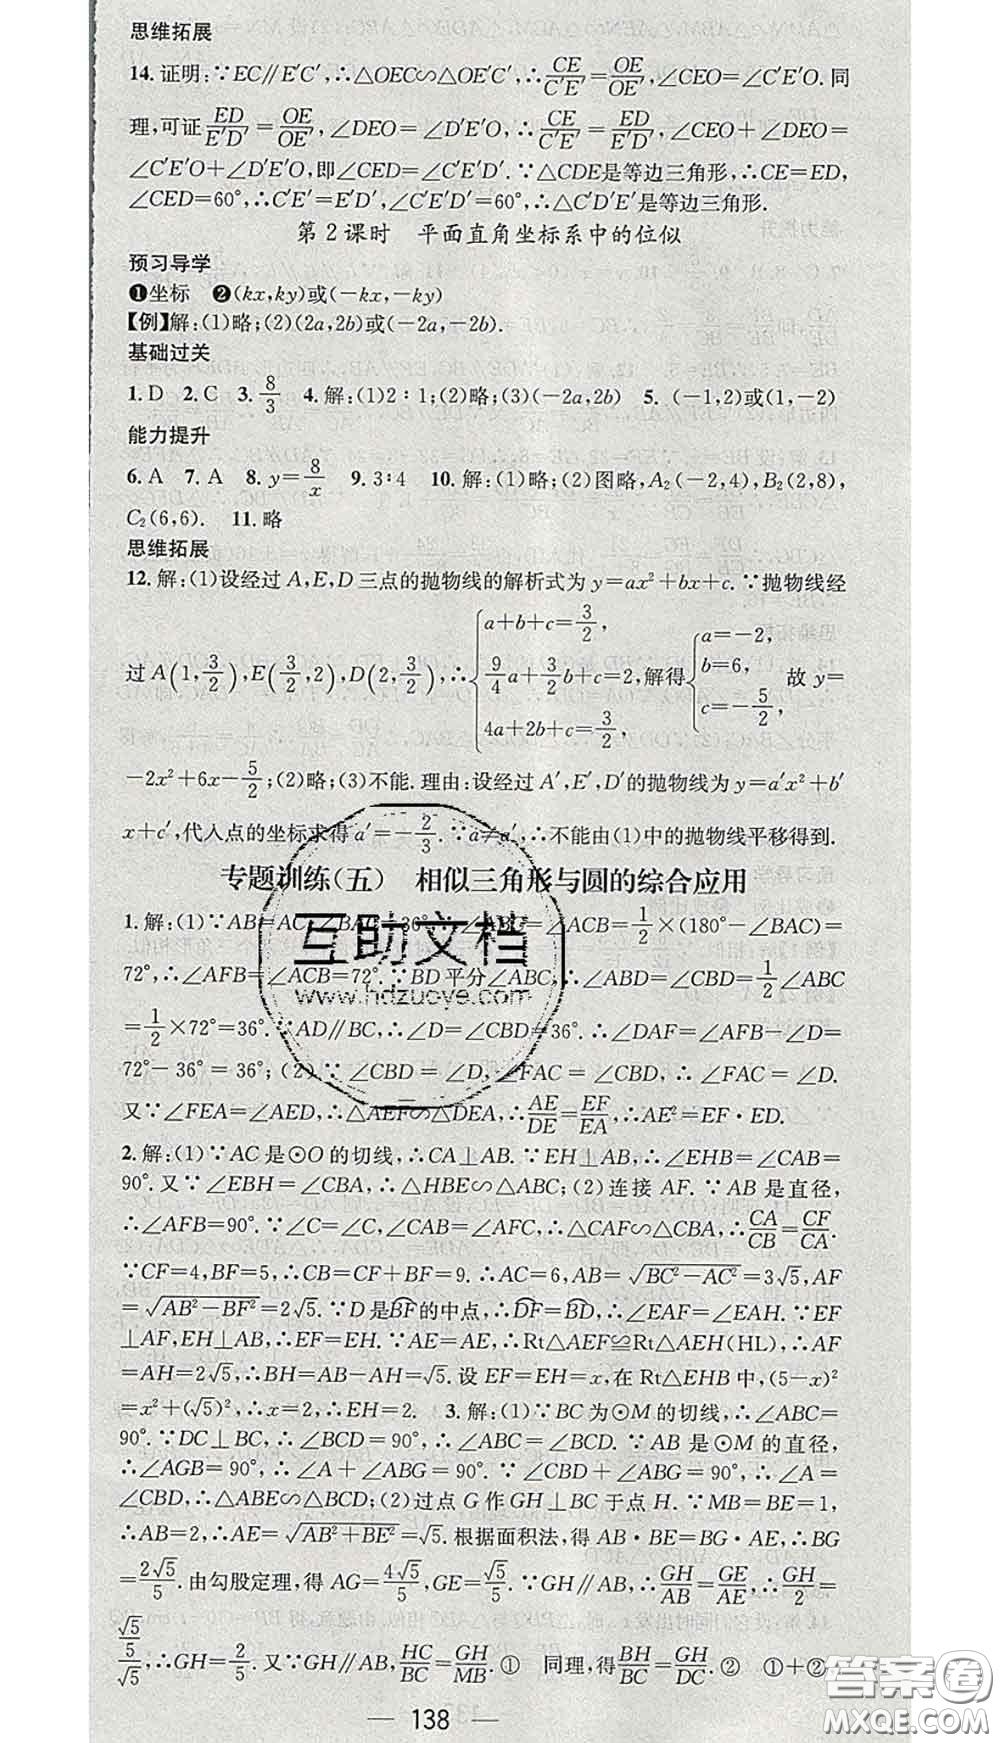 思维拓展
14.证明:∵EC∥E′C′,∴△OEC∽△OE′C′,∴CE/C′E′=OE/OE′,∠CEO=∠C′E′O.同
理,可证ED/E′D′=OE/OE′,∠DEO=∠D′E′O,∴CE/C′E′=ED/E′D′,∠CEO+∠DEO=
∠C′E′O+∠D′E′O,即∠CED=∠C′E′D′.∵△CDE是等边三角形,∴CE=ED,
∠CED=60°,∴C′E′=E′D′,∠C′E′D′=60°,∴△C′D′E′是等边三角形.
第2课时 平面直角坐标系中的位似
预习导学
❶坐标 ❷(kx,ky)或(-kx,-ky)
【例】解:(1)略;(2)(2a,2b)或(-2a,-2b).
基础过关
1.D 2.C 3.8/3 4.解:(1)2∶1;(2)略;(3)(-2a,2b) 5.(-1,2)或(1,-2)
能力提升
6.A 7.A 8.y=8/x 9.3∶4 10.解:(1)略;(2)图略,A₂(-2,4),B₂(2,8),
C₂(6,6). 11.略
思维拓展
12.解:(1)设经过A,E,D三点的抛物线的解析式为y=ax²+bx+c.∵抛物线经
过A(1,3/2),E(3/2,2),D(2,3/2),∴{a+b+c=3/2, 9/4a+3/2b+c=2, 4a+2b+c=3/2, 解得{a=-2, b=6, c=-5/2, 故y=
-2x²+6x-5/2;(2)略;(3)不能.理由:设经过A′,E′,D′的抛物线为y=a′x²+b′
x+c′,代入点的坐标求得a′=-2/3.∵a≠a′,∴不能由(1)中的抛物线平移得到.
专题训练(五) 相似三角形与圆的综合应用
1.解:(1)∵AB=AC,∠BAC=36°,∴∠ABC=∠ACB=1/2×(180°-∠BAC)=
72°,∴∠AFB=∠ACB=72°.∵BD平分∠ABC,∴∠ABD=∠CBD=1/2∠ABC
=1/2×72°=36°.∵AD∥BC,∴∠D=∠CBD=36°.∴∠DAF=∠AFB-∠D=
72°-36°=36°;(2)∵∠CBD=∠D,∠FAC=∠CBD,∴∠FAC=∠D.
又∵∠FEA=∠AED,∴△AEF∽△DEA,∴AE/DE=EF/EA,∴AE²=EF·ED.
2.解:(1)∵AC是⊙O的切线,∴CA⊥AB.∵EH⊥AB,∴∠EHB=∠CAB=
90°.又∵∠EBH=∠CBA,∴△HBE∽△ABC;(2)连接AF.∵AB是直径,
∴∠AFB=90°.∵∠C=∠C,∠CAB=∠AFC,∴△CAF∽△CBA,∴CA/CB=CF/CA.
∵CF=4,BF=5,∴CB=CF+BF=9.∴AC=6,AB=√(BC²-AC²)=3√5,AF
=√(AB²-BF²)=2√5.∵D是BF的中点,∴DF=BD,∴∠EAF=∠EAH.∵EF
⊥AF,EH⊥AB,∴EF=EH.∵AE=AE,∴Rt△AEF≌Rt△AEH(HL),∴AF
=AH=2√5,∴BH=AB-AH=√5.设EF=EH=x,在Rt△EHB中,(5-x)²
=x²+(√5)²,∴x=2,∴EH=2. 3.解:(1)∵BC为⊙M的切线,∴∠ABC=
90°.∵DC⊥BC,∴∠BCD=90°,∴∠ABC=∠BCD.∵AB是⊙M的直径,
∴∠AGB=90°,∴∠A+∠ABG=90°.∵∠CBD+∠ABG=90°,∴∠A=
∠CBD,∴△ABE∽△BCD;(2)过点G作GH⊥BC于点H.∵MB=BE=1,
∴AB=2,∴AE=√(AB²+BE²)=√5.根据面积法,得AB·BE=BG·AE,∴BG
=2√5/5.由勾股定理,得AG=4√5/5,GE=√5/5.∵GH∥AB,∴GH/AB=GE/AE,∴GH/2=
(√5/5)/√5,∴GH=2/5.又∵GH∥AB,HC/BC=GH/MB.① 同理,得BH/BC=GH/DC.② ①+②,
138
互助文档
www.hdzuoye.com
答案圈
MXQE.COM